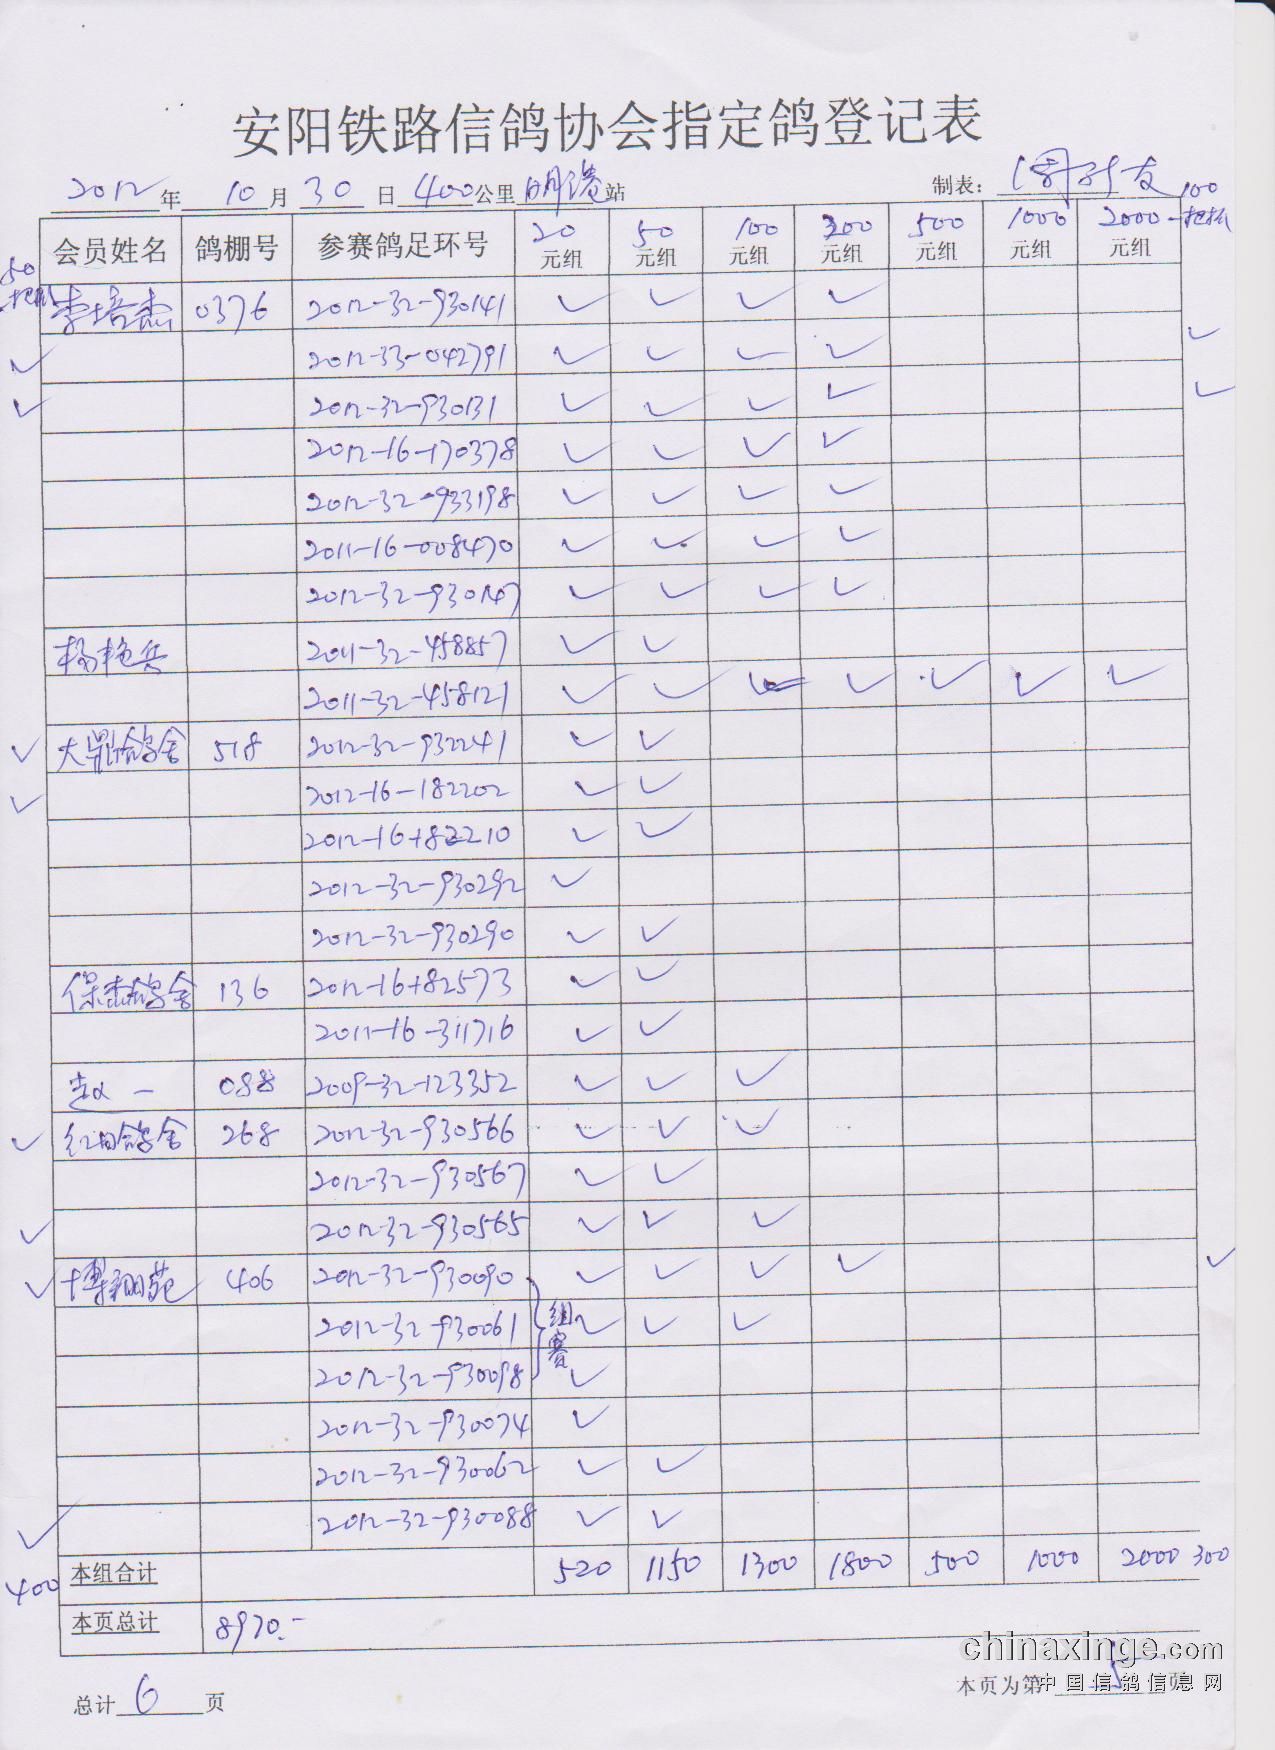 安阳铁路信鸽协会指定鸽登记表
2012年 10月 30日 400公里 明港站 制表：
100
会员姓名 鸽棚号 参赛鸽足环号 20元组 50元组 100元组 300元组 500元组 1000元组 2000元组 一把抓
50
一把抓
李培杰 0376 2012-32-930141 ✓ ✓ ✓ ✓
✓ 2012-33-042791 ✓ ✓ ✓ ✓ ✓
✓ 2012-32-930131 ✓ ✓ ✓ ✓ ✓
2012-16-170378 ✓ ✓ ✓ ✓
2012-32-933198 ✓ ✓ ✓ ✓
2011-16-008470 ✓ ✓ ✓ ✓
2012-32-930147 ✓ ✓ ✓ ✓
杨艳兵 2011-32-458857 ✓ ✓
2011-32-458121 ✓ ✓ ✓ ✓ ✓ ✓ ✓
✓ 大鼎鸽舍 518 2012-32-932241 ✓ ✓
✓ 2012-16-182202 ✓ ✓
2012-16-182210 ✓ ✓
2012-32-930292 ✓
2012-32-930290 ✓ ✓
保杰鸽舍 136 2012-16-182573 ✓ ✓
2011-16-311716 ✓ ✓
赵一 088 2009-32-123352 ✓ ✓ ✓
✓ 红旗鸽舍 268 2012-32-930566 ✓ ✓ ✓
2012-32-930567 ✓ ✓
✓ 2012-32-930565 ✓ ✓ ✓
✓ 博翔苑 406 2012-32-930090 ✓ ✓ ✓ ✓ ✓
2012-32-930061 组赛 ✓ ✓ ✓
2012-32-930098 ✓
2012-32-930074 ✓
2012-32-930062 ✓ ✓
✓ 2012-32-930088 ✓ ✓
400 本组合计 520 1150 1300 1800 500 1000 2000 300
本页总计 8970.-
chinaxinge.com
总计 6 页 本页为第 5 页
中国信鸽信息网